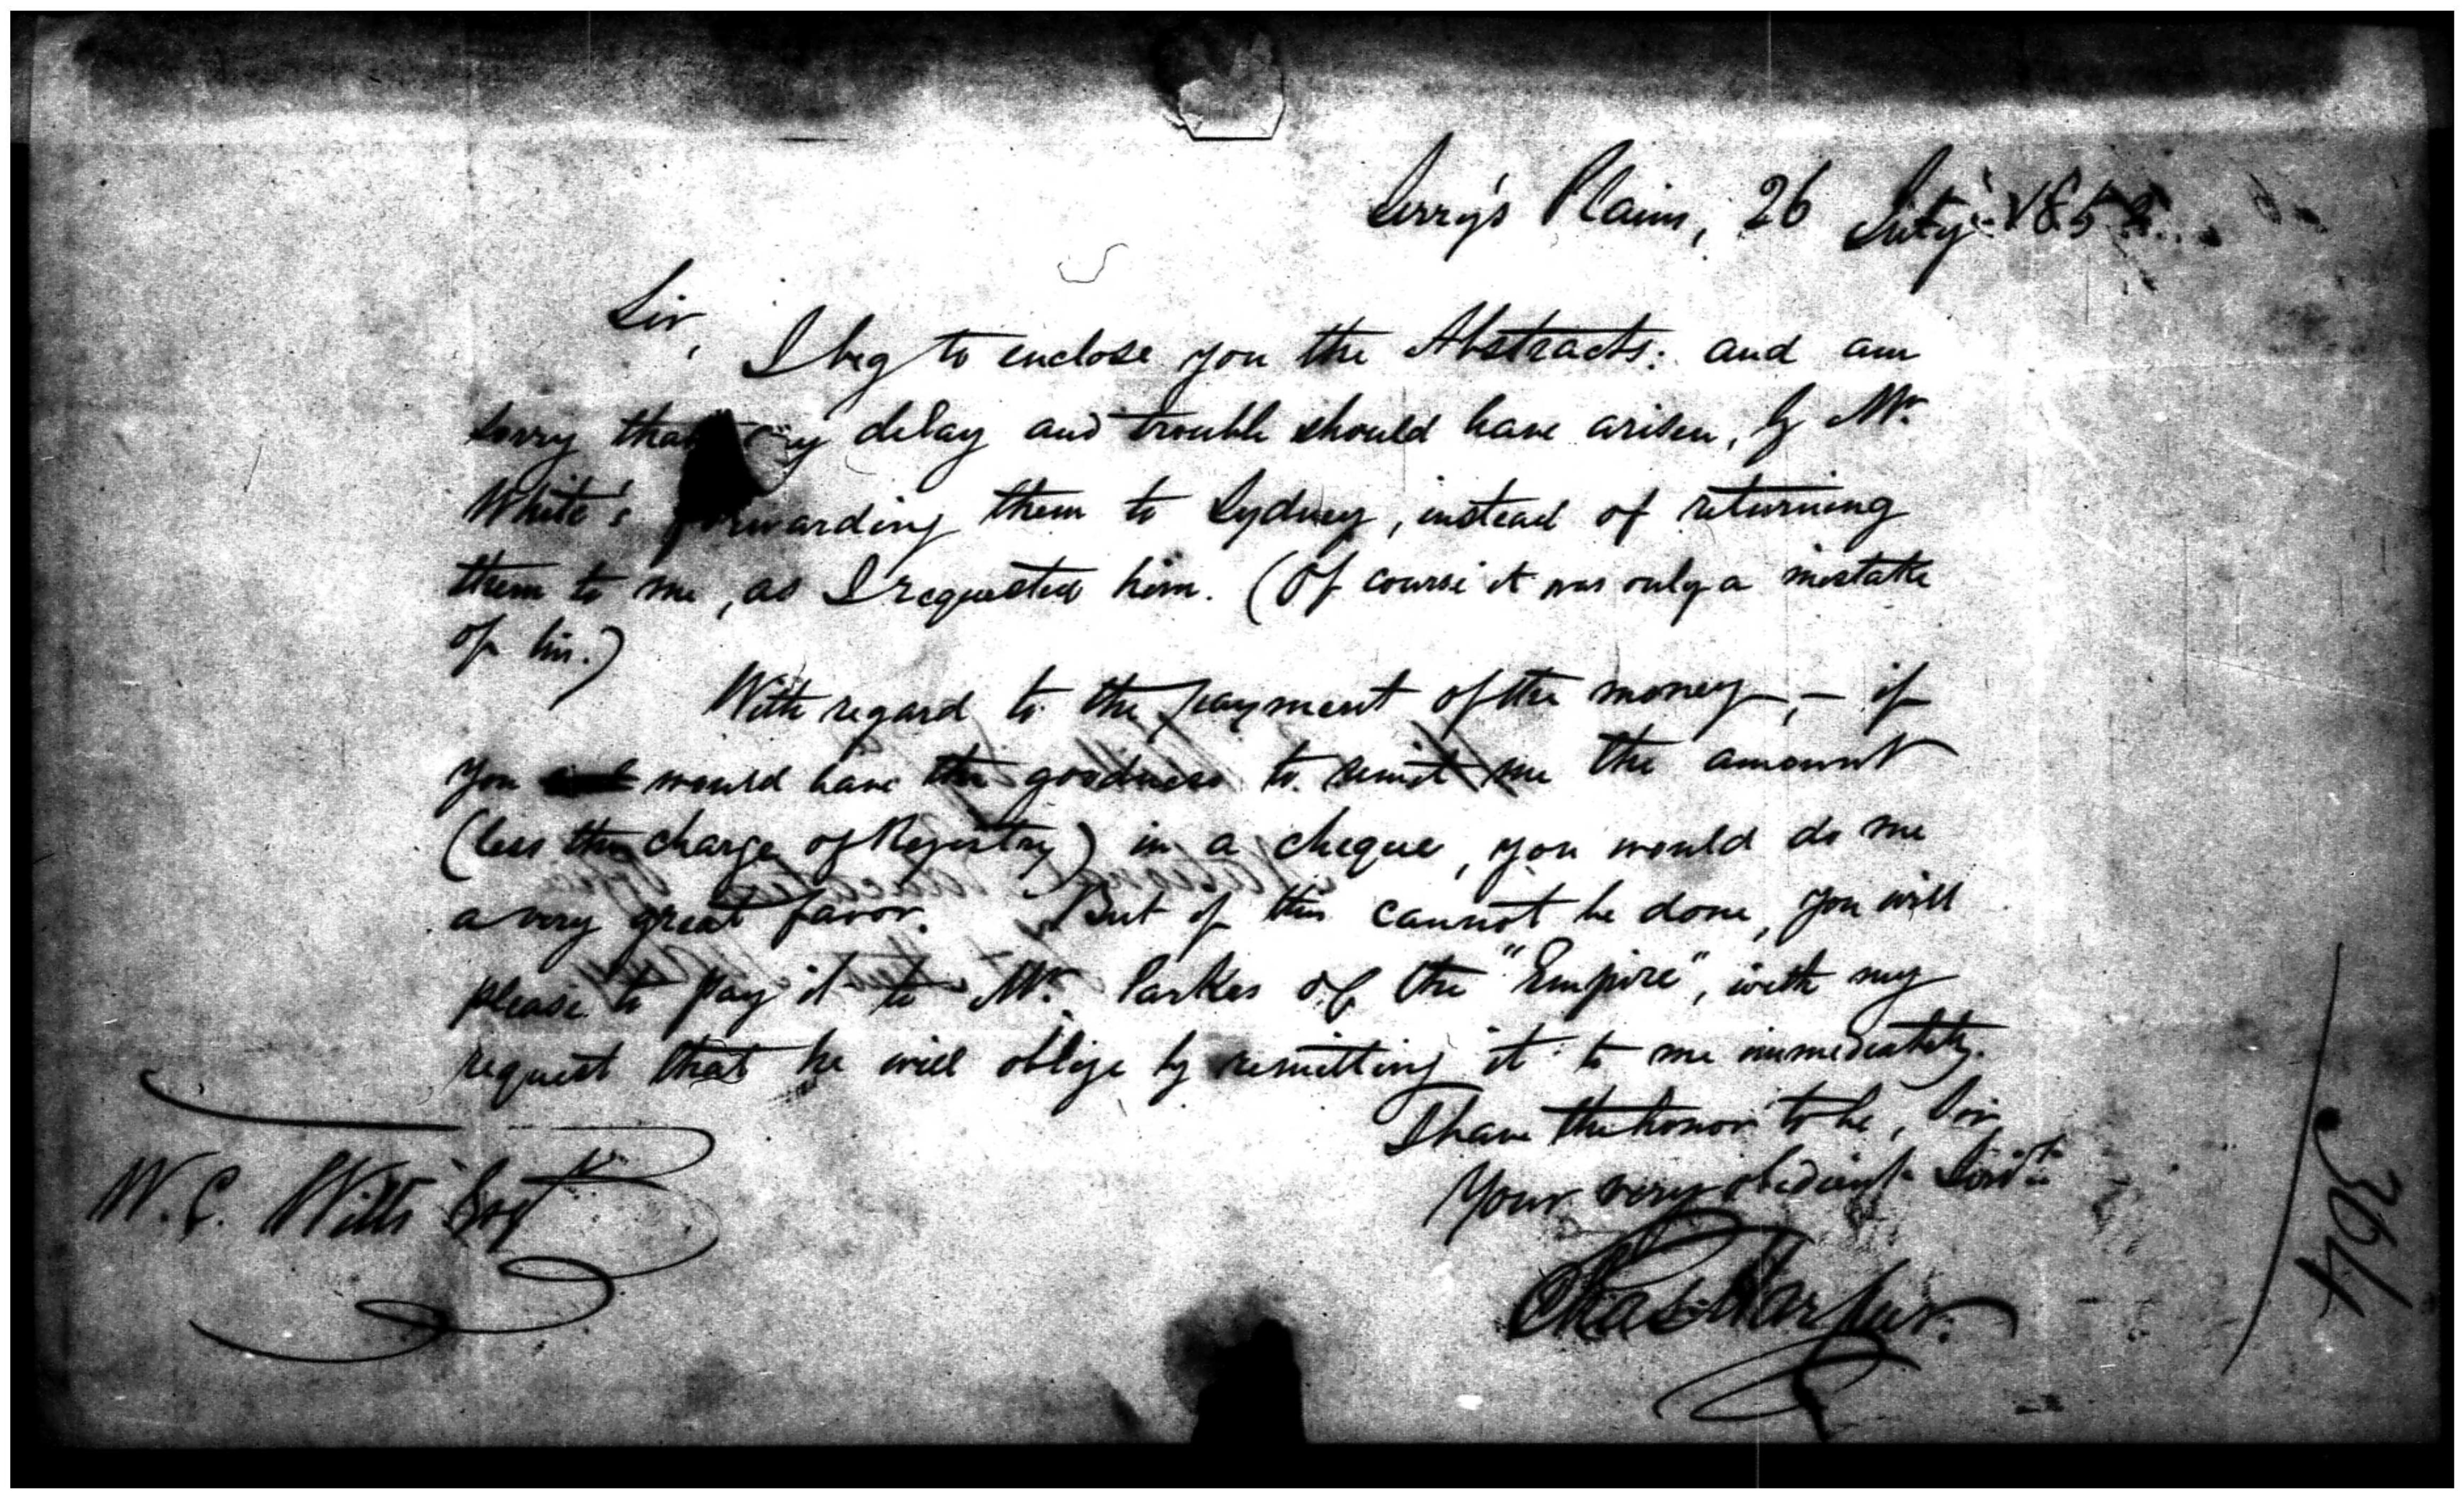 Jerry's Plains, 26 July 185
Sir,
I beg to enclose you the Abstracts: and am
sorry that any delay and trouble should have arisen, by Mr.
White's forwarding them to Sydney, instead of returning
them to me, as I requested him. (Of course it was only a mistake
of his.)
With regard to the payment of the money, — if
you would have the goodness to remit me the amount
(less the charge of Registry) in a cheque, you would do me
a very great favor. But if this cannot be done, you will
please to pay it to Mr. Parkes of the "Empire", with my
request that he will oblige by remitting it to me immediately.
I have the honor to be, Sir,
Your very obedient Servt.
Chas. Harpur.
W. C. Wills Esqr
364